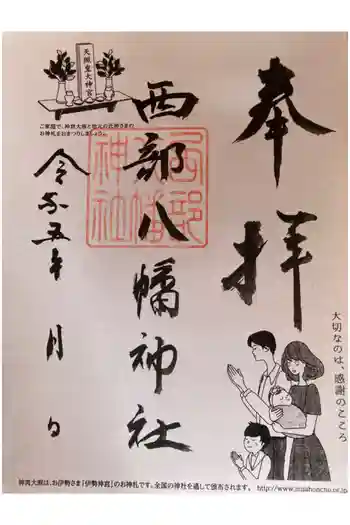 奉拝
大切なのは、感謝のこころ
西部八幡神社
西部
八幡
神社
天照皇大神宮
ご家庭で、神宮大麻と地元の氏神さまの
お神札をおまつりしましょう。
令和五年 月 日
神宮大麻は、お伊勢さま「伊勢神宮」のお神札です。全国の神社を通して頒布されます。 http://www.jinjahoncho.or.jp